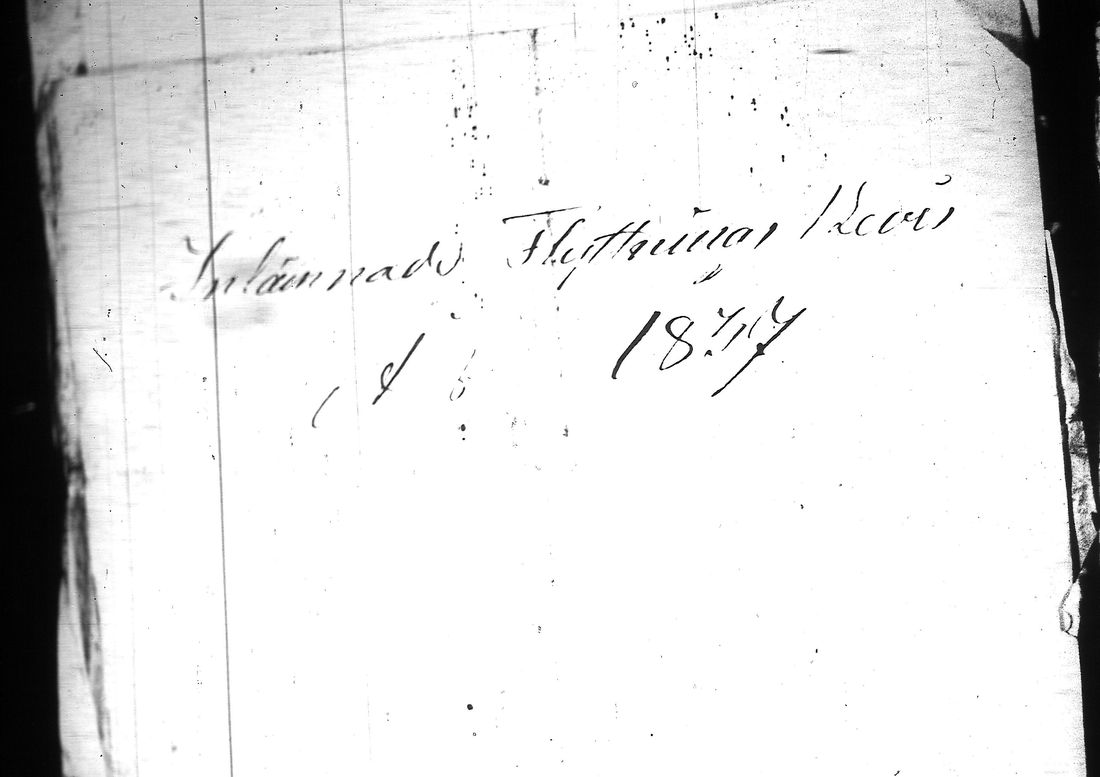 Inlämnade Flyttnings Bevis
1837